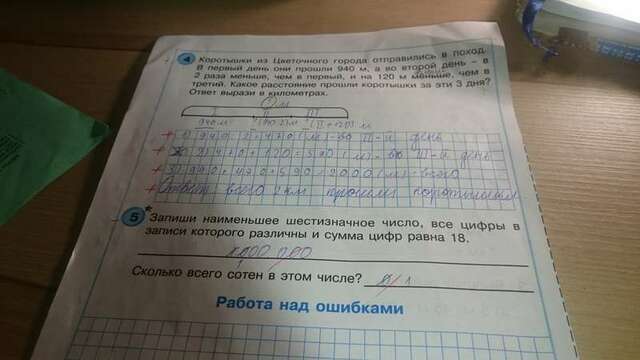 4 Коротышки из Цветочного города отправились в поход.
В первый день они прошли 940 м, а во второй день – в
2 раза меньше, чем в первый, и на 120 м меньше, чем в
третий. Какое расстояние прошли коротышки за эти 3 дня?
Ответ вырази в километрах.
940 м
1) 940:2=470(м)-во II-й день
2) 470+120=590(м)- во III-й день
3) 940+470+590=2000(м)-всего
Ответ: всего 2 км прошли коротышки
5* Запиши наименьшее шестизначное число, все цифры в
записи которого различны и сумма цифр равна 18.
Сколько всего сотен в этом числе?
Работа над ошибками